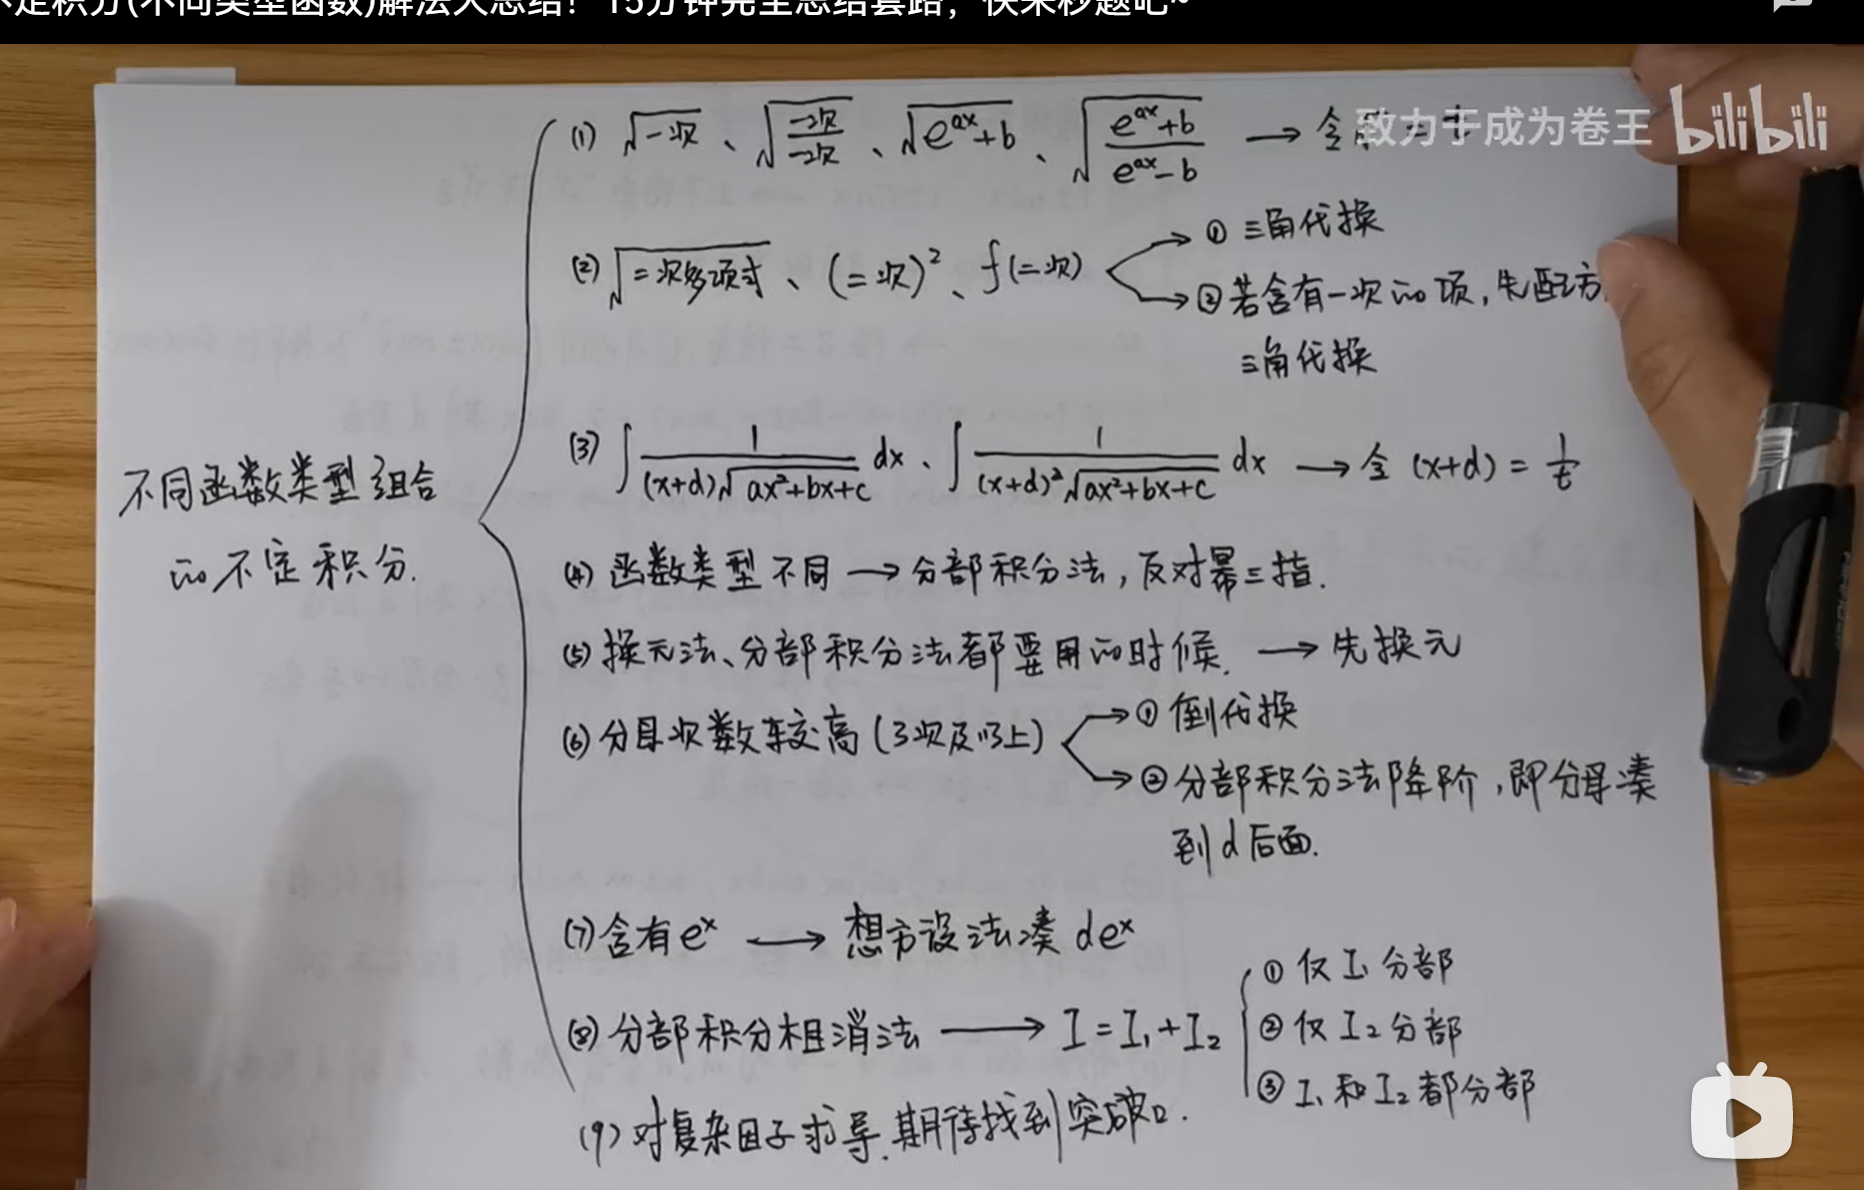 不定积分(不同类型函数)解法大总结！15分钟完全总结套路，快来秒题吧~
致力于成为卷王 bilibili
不同函数类型组合
的不定积分.
(1) √一次 、 √(一次/一次) 、 √(e^{ax}+b) 、 √((e^{ax}+b)/(e^{ax}-b)) → 令 = t
(2) √二次多项式 、 (二次)² 、 f(二次)
① 三角代换
② 若含有一次的项, 先配方
三角代换
(3) ∫ 1/((x+d)√(ax²+bx+c)) dx 、 ∫ 1/((x+d)²√(ax²+bx+c)) dx → 令 (x+d) = 1/t
(4) 函数类型不同 → 分部积分法, 反对幂三指.
(5) 换元法、分部积分法都要用的时候. → 先换元
(6) 分母次数较高 (3次及以上)
① 倒代换
② 分部积分法降阶, 即分母凑
到d后面.
(7) 含有 e^x → 想方设法凑 de^x
(8) 分部积分相消法 → I = I₁ + I₂
① 仅 I₁ 分部
② 仅 I₂ 分部
③ I₁ 和 I₂ 都分部
(9) 对复杂因子求导. 期待找到突破口.